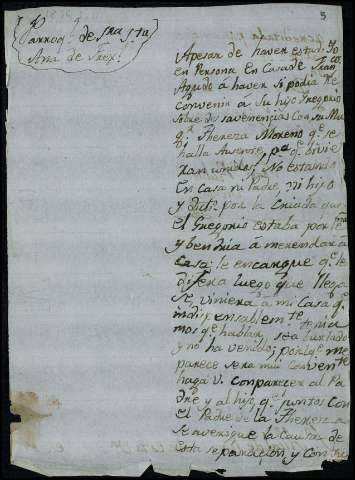 5
Parroq.ª de Sra. Sta.
Ana de Trex.ª
Apesar de haver estado yo
en Persona En Casa de Fran.co
Agudo á haver si podia Re
convenir a Su hijo Gregorio
Sobre desavenencias con su Mu
g.r Thereza Moreno q.e se
halla Ausente, p.a q.e bivie
ran unidos, No estando
En Casa ni Padre, ni hijo
y dicho por la Criada que
el Gregorio estaba por
y bendria á merendar á
Casa: le encargue q.e le
dijera luego que llega
se, viniera á mi Casa q.e
indispensablem.te tenia
mos q.e hablar, se a burlado
y no ha venido; por lo q.e me
parece sera muy conven.te
haga V. comparecer al Pa
dre y al hijo, q.e juntos con
el Padre de la Thereza
se averigue la Causa de
esta separacion, y